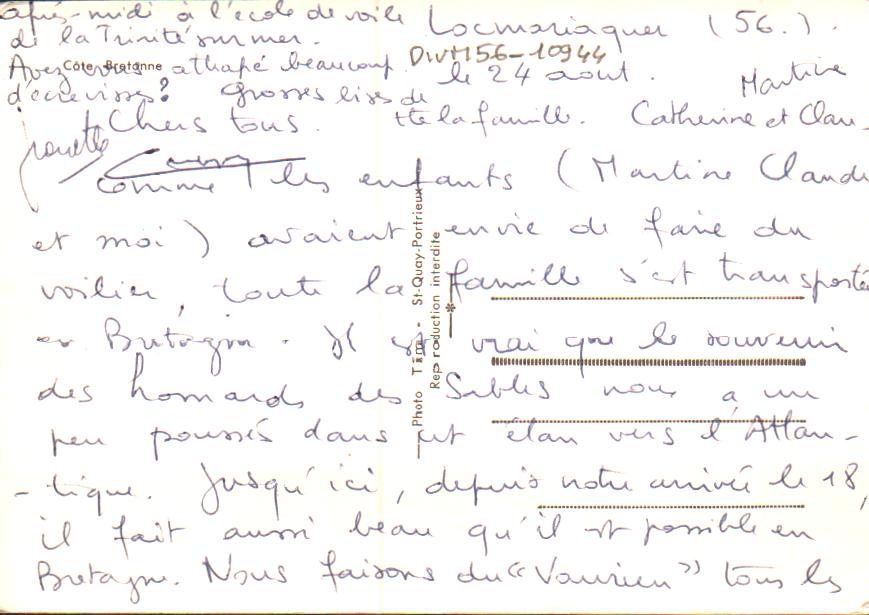 Locmariaquer (56.)
DIVM56-10944
le 24 aout.
Chers tous.
Comme les enfants (Martine Claude
et moi) avaient envie de faire du
voilier, toute la famille s'est transportée
en Bretagne. Il est vrai que le souvenir
des homards des Sables nous a un
peu poussés dans cet élan vers l'Atlan-
-tique. Jusqu'ici, depuis notre arrivée le 18,
il fait aussi beau qu'il est possible en
Bretagne. Nous faisons du "Vaurien" tous les
après-midi à l'école de voile
de la Trinité sur mer.
Avez vous attrapé beaucoup
d'écrevisses? Grosses bises de
tte la famille. Catherine et Clau-
Martine
Côte Bretonne
Photo - St-Quay-Portrieux
Reproduction interdite